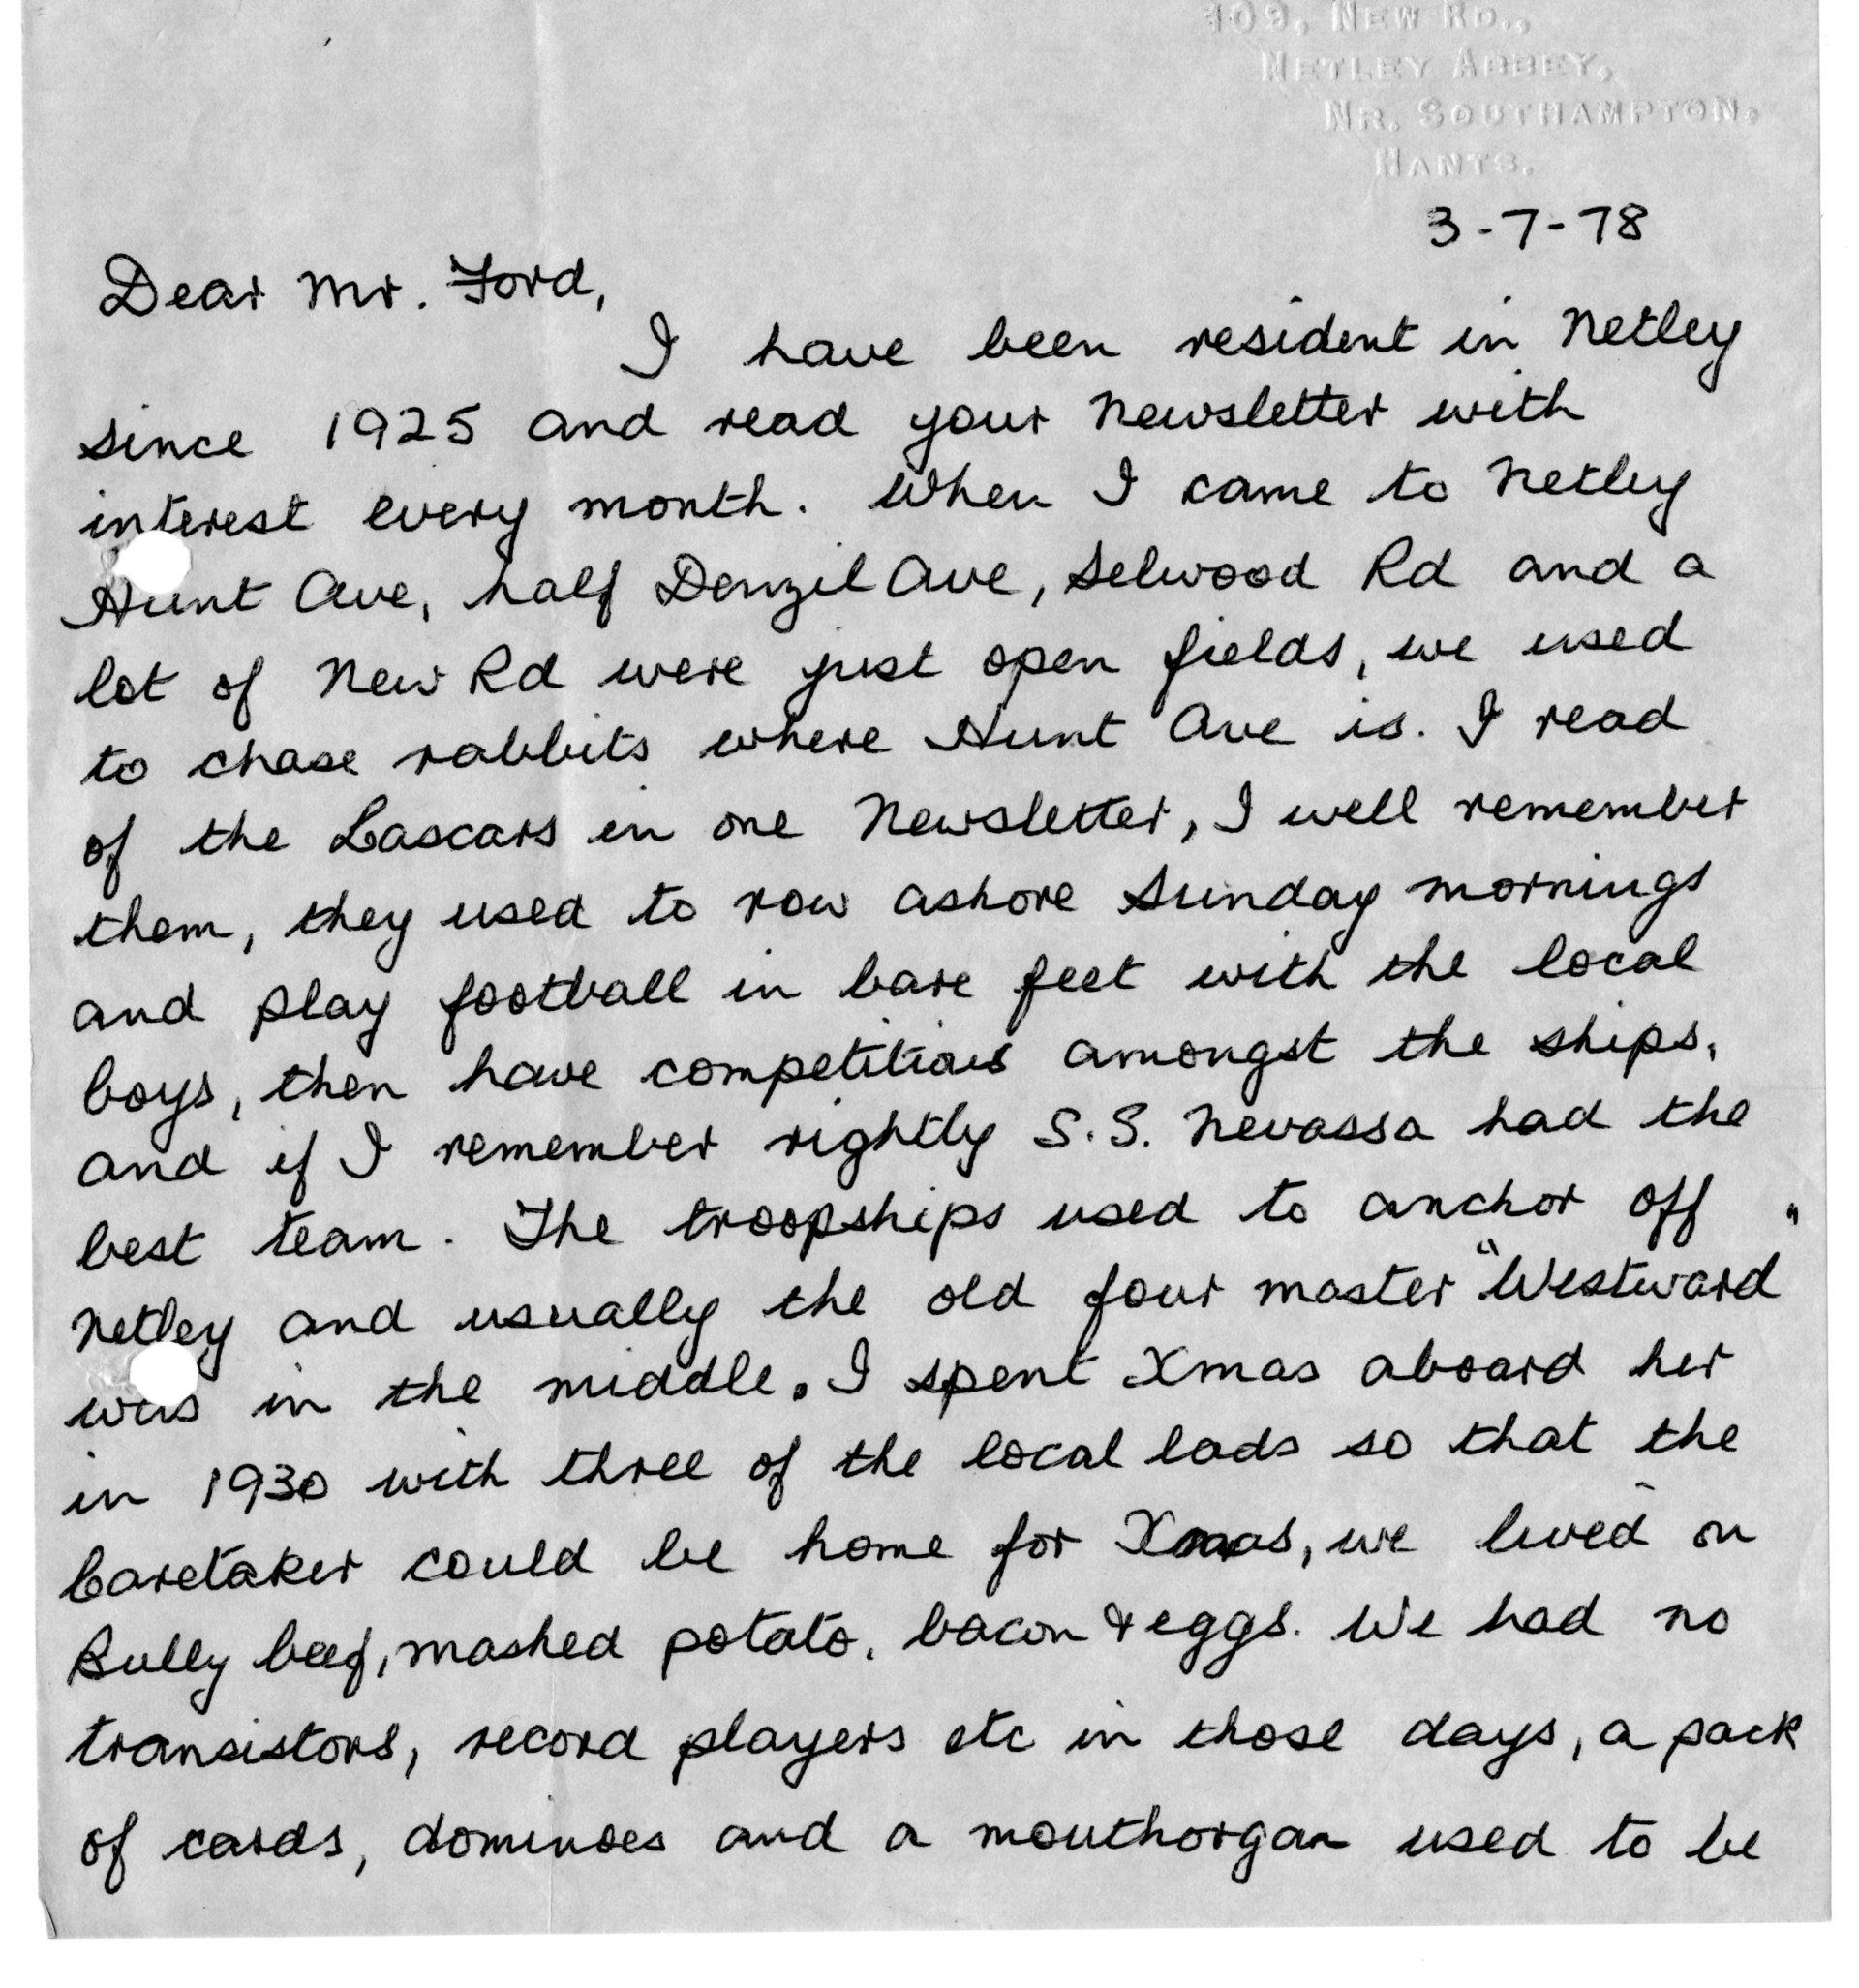 109, NEW RD.,
NETLEY ABBEY,
NR. SOUTHAMPTON,
HANTS.
3-7-78
Dear Mr. Ford,
I have been resident in Netley
since 1925 and read your Newsletter with
interest every month. When I came to Netley
Hunt Ave, half Denzil Ave, Selwood Rd and a
lot of New Rd were just open fields, we used
to chase rabbits where Hunt Ave is. I read
of the Lascars in one Newsletter, I well remember
them, they used to row ashore Sunday mornings
and play football in bare feet with the local
boys, then have competitions amongst the ships,
and if I remember rightly S.S. Nevassa had the
best team. The troopships used to anchor off
Netley and usually the old four master "Westward"
was in the middle. I spent Xmas aboard her
in 1930 with three of the local lads so that the
Caretaker could be home for Xmas, we lived on
Bully beef, mashed potato, bacon & eggs. We had no
transistors, record players etc in those days, a pack
of cards, dominoes and a mouthorgan used to be